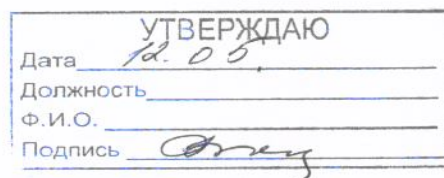 УТВЕРЖДАЮ
Дата 12.05.
Должность
Ф.И.О.
Подпись